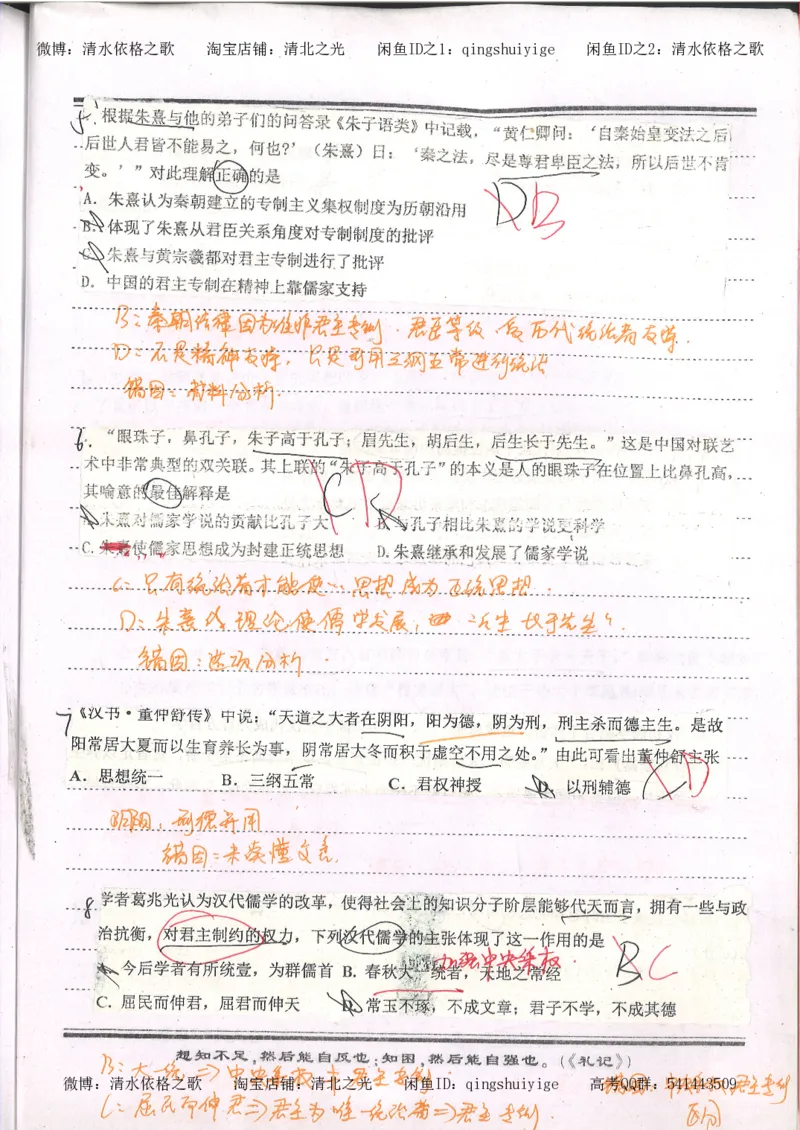 微博：清水依格之歌 淘宝店铺：清北之光 闲鱼ID之1：qingshuiyige 闲鱼ID之2：清水依格之歌
5. 根据朱熹与他的弟子们的问答录《朱子语类》中记载，“黄仁卿问：‘自秦始皇变法之后
后世人君皆不能易之，何也?’（朱熹）日：‘秦之法，尽是尊君卑臣之法，所以后世不肯
变。’”对此理解正确的是
A．朱熹认为秦朝建立的专制主义集权制度为历朝沿用
B．体现了朱熹从君臣关系角度对专制制度的批评
C．朱熹与黄宗羲都对君主专制进行了批评
D．中国的君主专制在精神上靠儒家支持
D B
B：秦朝法律因为维护君主专制．君臣等级 后历代统治者支持．
D：不是精神支持，只是利用三纲五常进行统治
错因：材料分析．
6．“眼珠子，鼻孔子，朱子高于孔子；眉先生，胡后生，后生长于先生。”这是中国对联艺
术中非常典型的双关联。其上联的“朱子高于孔子”的本义是人的眼珠子在位置上比鼻孔高，
其喻意的最佳解释是
C D
A.朱熹对儒家学说的贡献比孔子大 B.与孔子相比朱熹的学说更科学
C.朱熹使儒家思想成为封建正统思想 D.朱熹继承和发展了儒家学说
C：只有统治者才能使…思想成为正统思想．
D：朱熹 理论使儒学发展， “后生长于先生”．
错因：选项分析．
7《汉书·董仲舒传》中说：“天道之大者在阴阳，阳为德，阴为刑，刑主杀而德主生。是故
阳常居大夏而以生育养长为事，阴常居大冬而积于虚空不用之处。”由此可看出董仲舒主张
A．思想统一 B．三纲五常 C．君权神授 D．以刑辅德
D
阴阳，刑德并用
错因：未读懂文意．
8 学者葛兆光认为汉代儒学的改革，使得社会上的知识分子阶层能够代天而言，拥有一些与政
治抗衡，对君主制约的权力，下列汉代儒学的主张体现了这一作用的是
加强中央集权．
B C
A.今后学者有所统壹，为群儒首 B. 春秋大一统者，天地之常经
C．屈民而伸君，屈君而伸天 D.常玉不琢，不成文章；君子不学，不成其德
想知不足，然后能自反也；知困，然后能自强也。（《礼记》）
B：大一统⇒中央集权
微博：清水依格之歌 淘宝店铺：清北之光 闲鱼ID：qingshuiyige 高考QQ群：541443509
C：屈民而伸君⇒君主为唯一统治者⇒君主专制．